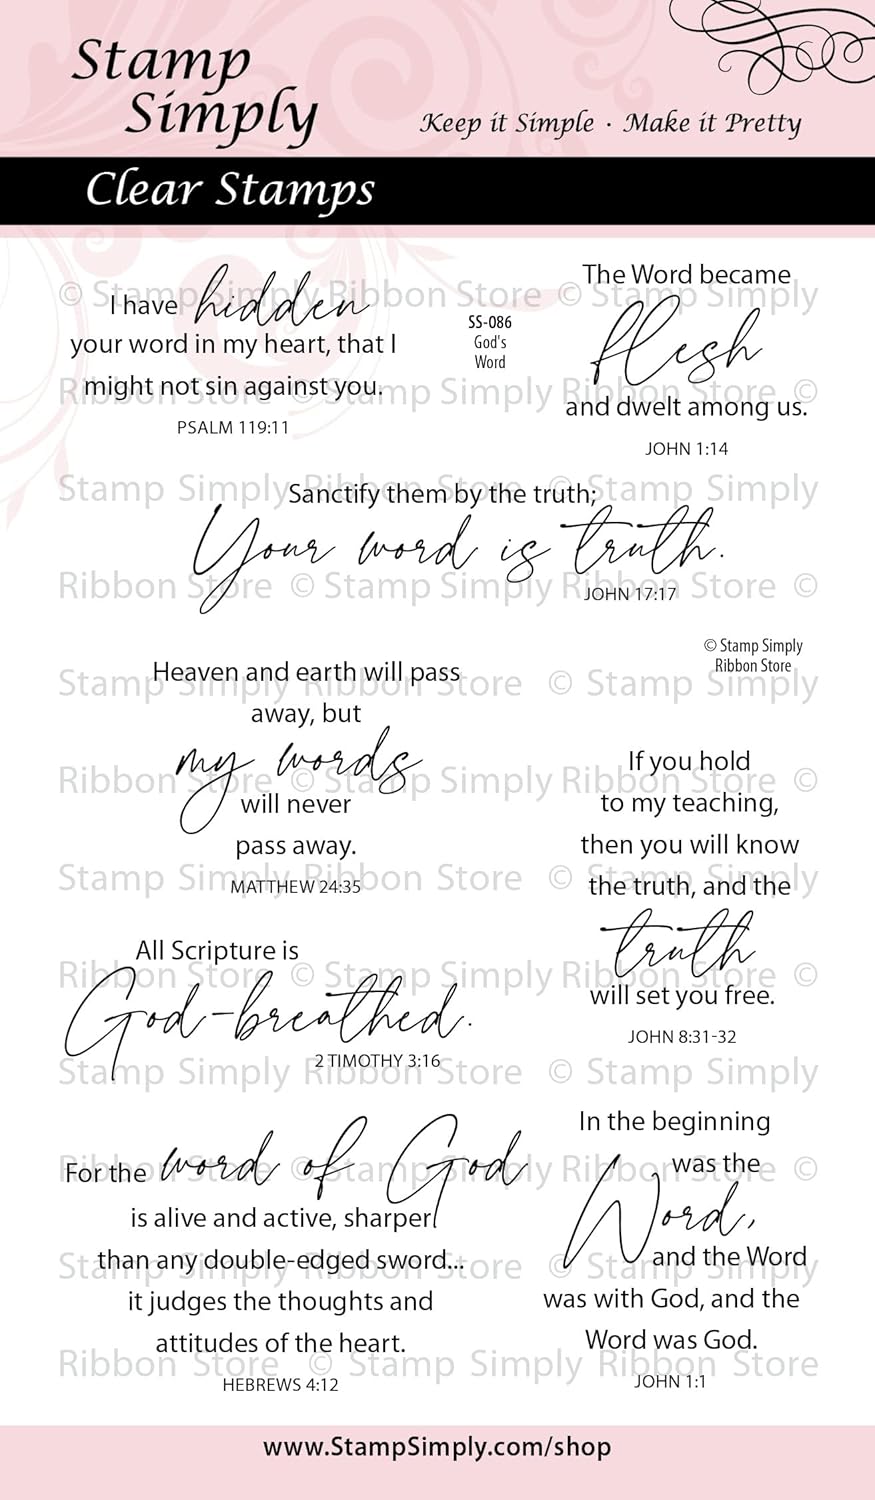 Stamp
Simply
Keep it Simple · Make it Pretty
Clear Stamps
I have hidden
your word in my heart, that I
might not sin against you.
PSALM 119:11
SS-086
God's
Word
The Word became
flesh
and dwelt among us.
JOHN 1:14
Sanctify them by the truth;
Your word is truth.
JOHN 17:17
© Stamp Simply
Ribbon Store
Heaven and earth will pass
away, but
my words
will never
pass away.
MATTHEW 24:35
If you hold
to my teaching,
then you will know
the truth, and the
truth
will set you free.
JOHN 8:31-32
All Scripture is
God-breathed.
2 TIMOTHY 3:16
For the word of God
is alive and active, sharper
than any double-edged sword...
it judges the thoughts and
attitudes of the heart.
HEBREWS 4:12
In the beginning
was the
Word,
and the Word
was with God, and the
Word was God.
JOHN 1:1
© Stamp Simply Ribbon Store © Stamp Simply
Ribbon Store © Stamp Simply Ribbon Store ©
Stamp Simply Ribbon Store © Stamp Simply
Ribbon Store © Stamp Simply Ribbon Store ©
Stamp Simply Ribbon Store © Stamp Simply
Ribbon Store © Stamp Simply Ribbon Store ©
Stamp Simply Ribbon Store © Stamp Simply
Ribbon Store © Stamp Simply Ribbon Store ©
Stamp Simply Ribbon Store © Stamp Simply
Ribbon Store © Stamp Simply Ribbon Store ©
Stamp Simply Ribbon Store © Stamp Simply
Ribbon Store © Stamp Simply Ribbon Store
www.StampSimply.com/shop